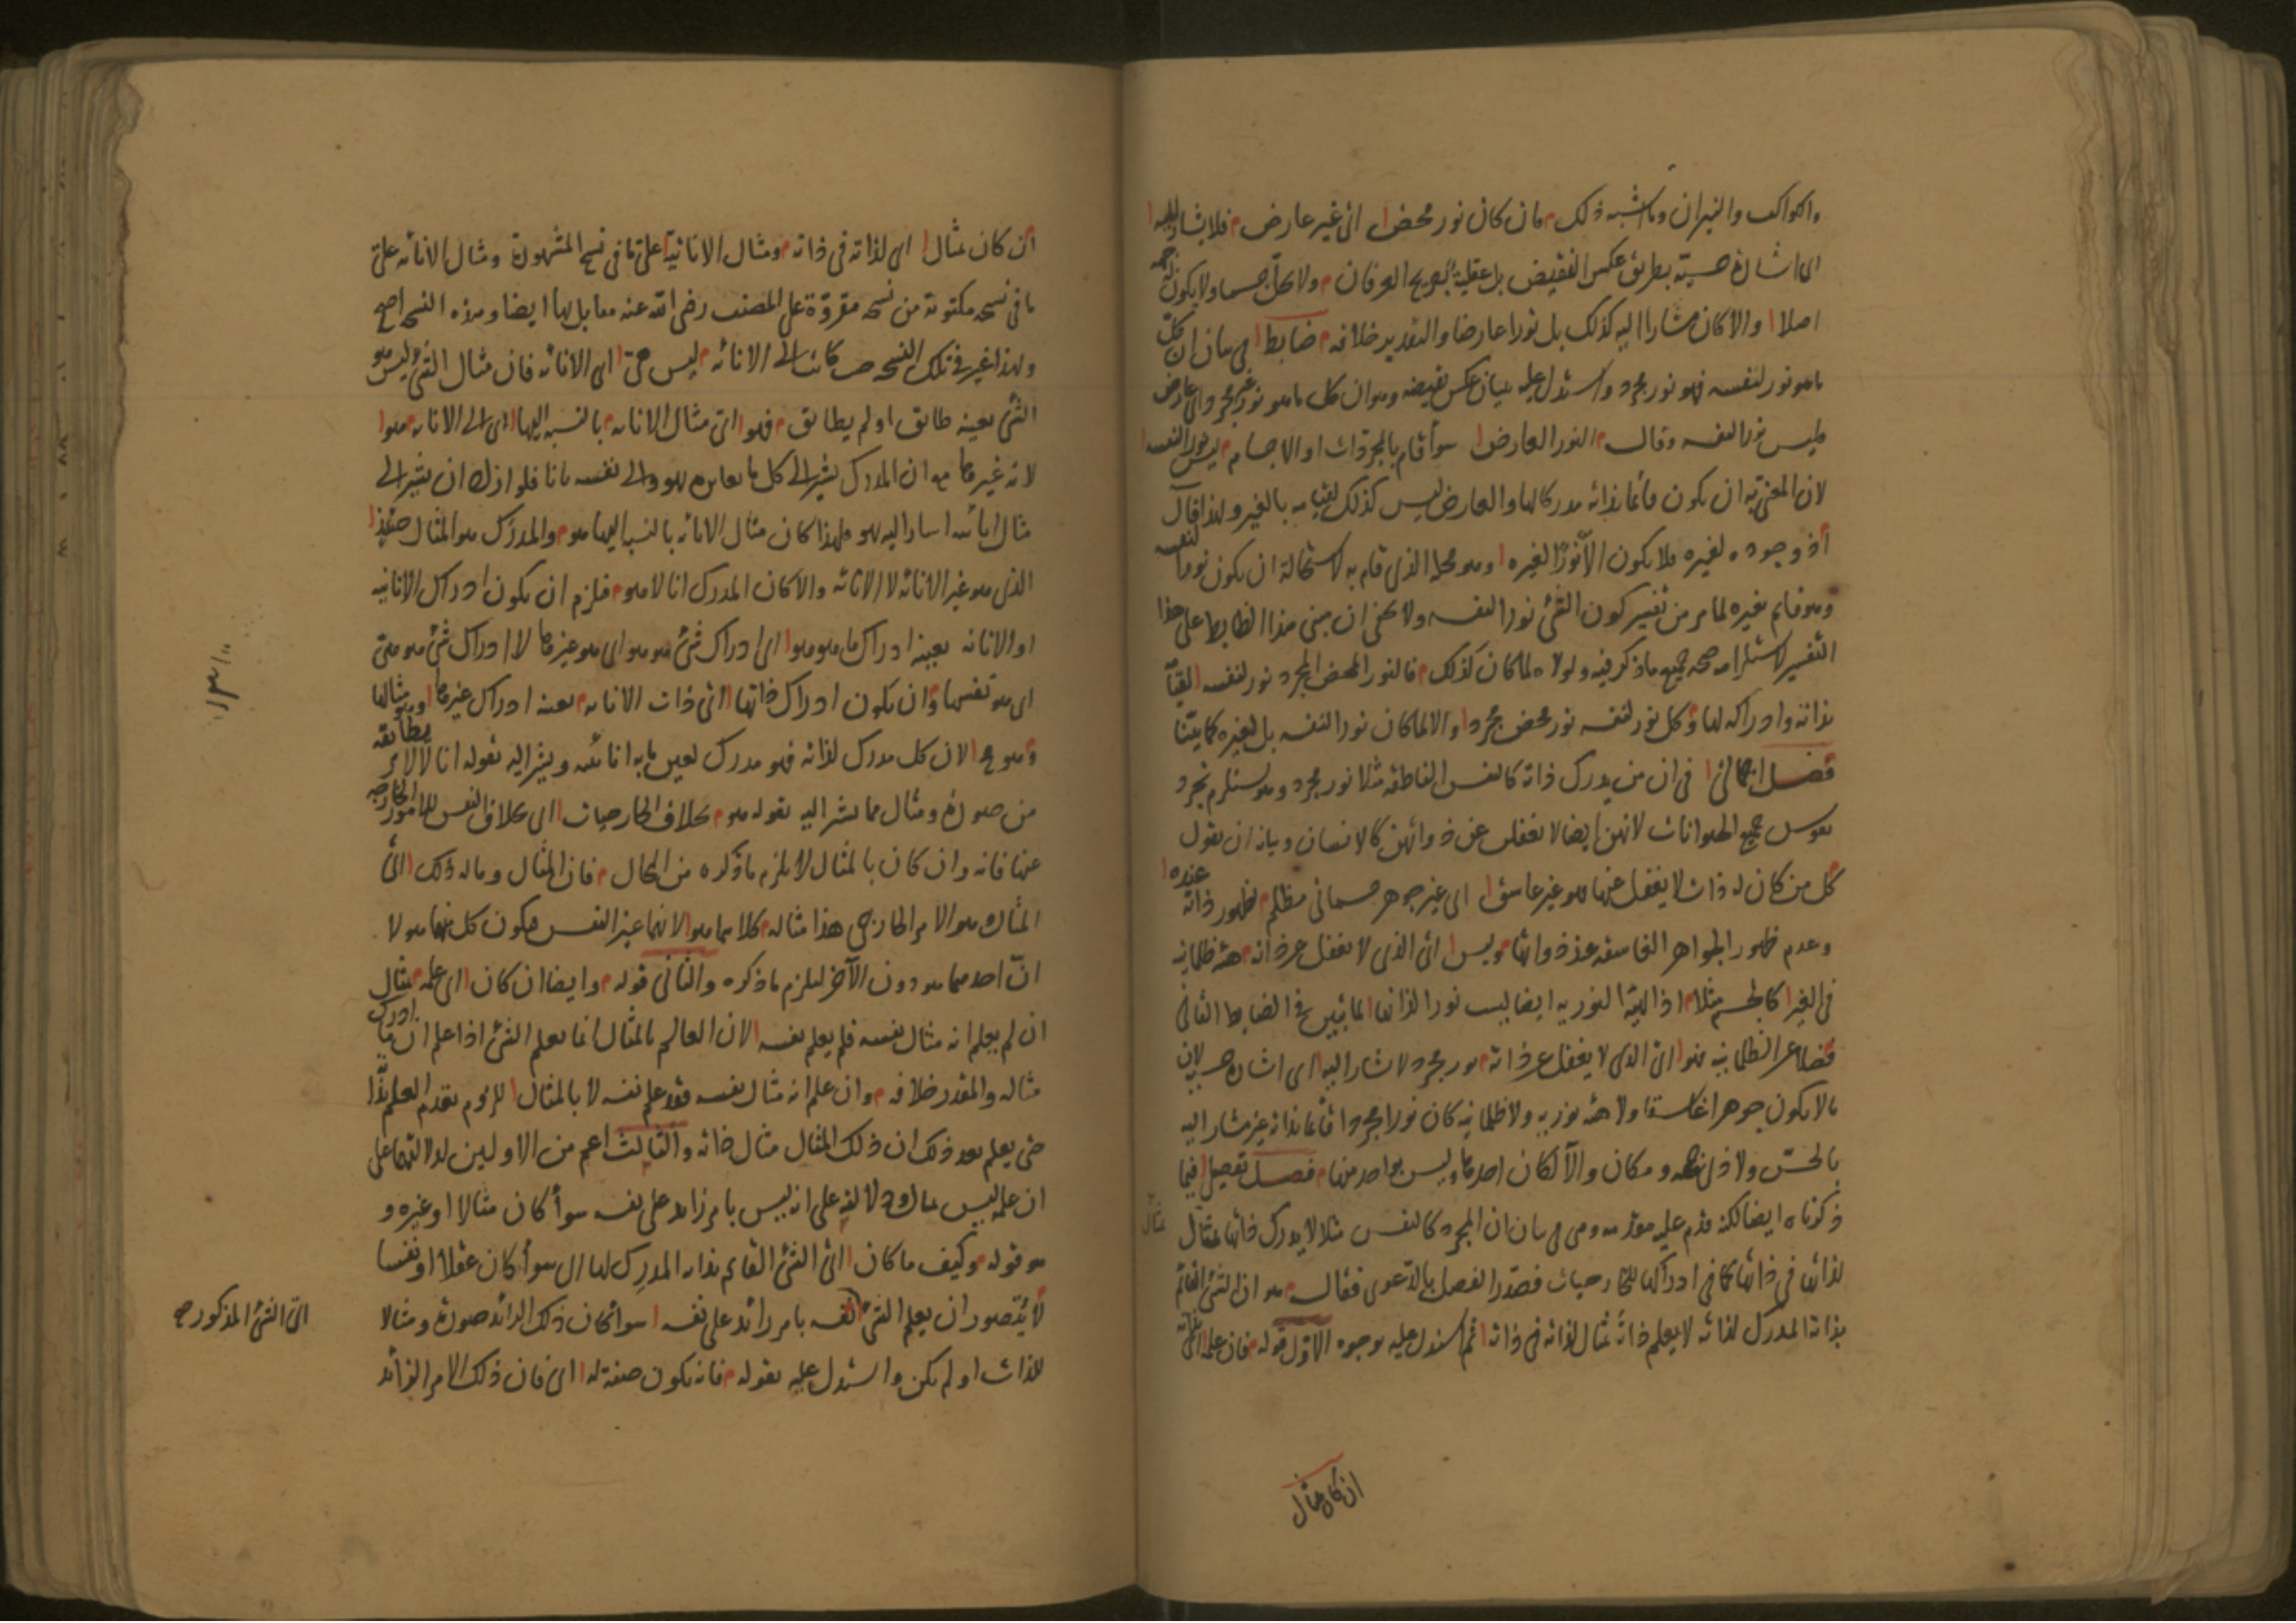 والكواكب والنيران وما اشبه ذلك فان كان نور محضا اى غير عارض فلا يشار اليه
اى اشارة حسية بطريق عكس النقيض بل عقلية بصريح العرفان ولا يحل جسما ولا يكون له جهة
اصلا والا كان مشارا اليه كذلك بل نورا عارضا والتقدير خلافه ضابط فى بيان ان كل
ما هو نور لنفسه فهو نور مجرد واستدل عليه ببيان عكس نقيضه وهو ان كل ما هو نور غير مجرد اى عارض
فليس نورا لنفسه وقال النور العارض سوآ قام بالمجردات او الاجسام ليس نورا لنفسه
لان المعنى به ان يكون قائما بذاته مدركا لها والعارض ليس كذلك لقيامه بالغير ولهذا قال
اذ وجوده لغيره فلا يكون الا نورا لغيره وهو محله الذى قام به لاستحالة ان يكون نورا لنفسه
وهو قائم بغيره لما مر من تفسير كون الشئ نورا لنفسه ولا يخفى ان مبنى هذا الضابط على هذا
التفسير لاستلزامه صحة جميع ما ذكر فيه ولولاه لما كان كذلك فالنور المحض المجرد نور لنفسه لقيامه
بذاته وادراكه لها وكل نور لنفسه نور محض مجرد والا لما كان نورا لنفسه بل لغيره كما بيّنا
فصل اجمالى فى ان من يدرك ذاته كالنفس الناطقة مثلا نور مجرد وهو يستلزم تجرد
نفوس جميع الحيوانات لانهن ايضا لا تغفلن عن ذواتهن كالانسان وبيانه ان نقول
كل من كان له ذات لا يغفل عنها فهو غير غاسق اى غير جوهر جسمانى مظلم لظهور ذاته عنده
وعدم ظهور الجواهر الغاسقة عند ذواتها وليس اى الذى لا يغفل عن ذاته هيئة ظلمانية
فى الغير كالجسم مثلا اذ الهيئة النورية ايضا ليست نورا لذاتها لما تبيّن فى الضابط الثانى
فضلا عن الظلمانية فهو اى الذى لا يغفل عن ذاته نور مجرد لا يشار اليه اى اشارة حسية لان
ما لا يكون جوهرا غاسقا ولا هيئة نورية ولا ظلمانية كان نورا مجردا قائما بذاته غير مشار اليه
بالحسّ ولا ذى جهة ومكان والا لكان احدها وليس بواحد منها فصل تفصيلى فيما
ذكرناه ايضا لكنه قدم عليه مقدمة وهى فى بيان ان المجرد كالنفس مثلا لا يدرك ذاتها بمثال
لذاتها فى ذاتها كما فى ادراكها للخارجيات فصدّر الفصل بالدعوى فقال هو ان الشئ القائم
بذاته المدرك لذاته لا يعلم ذاته بمثال لذاته فى ذاته ثم استدل عليه بوجوه الاول قوله فان علمه اى بذاته
مثال
ان كان بمثال
ان كان بمثال اى لذاته فى ذاته ومثال الانانية على ما فى نسخ المشهورة ومثال الانائه على
ما فى نسخة مكتوبة من نسخة مقروّة على المصنف رضى الله عنه مقابل لها ايضا وهذه النسخة اصح
ولهذا غير فى تلك النسخة حيث كانت الى الانائه ليس هى اى الانائه فان مثال الشئ ليس هو
الشئ بعينه طابق او لم يطابق فهو اى مثال الانائه بالنسبة اليها اى الى الانائه هو
لانه غيرها مع ان المدرك يشير الى كل ما يغايره بهو والى نفسه بانا فلو ادرك ان يشير الى
مثال انائيته اشار اليه بهو ولهذا كان مثال الانائه بالنسبة اليها هو والمدرك هو المثال حينئذ
الذى هو غير الانائه لا الانائه والا كان المدرك انا لا هو فلزم ان يكون ادراك الانانيه
او الانائه بعينه ادراك ما هو هو اى ادراك شئ هو هو اى هو غيرها لا ادراك شئ هو هى
اى هو نفسها وان يكون ادراك ذاتها اى ذات الانائه بعينه ادراك غيرها وهو مثالها
وهو مح لان كل مدرك لذاته فهو مدرك لعين ما به انائيته ويشير اليه بقوله انا لا لامر يطابقه
من صورة ومثال مما يشير اليه بقوله هو بخلاف الخارجيات اى بخلاف النفس للامور الخارجة
عنها فانه وان كان بالمثال لا يلزم ما ذكره من المحال فان المثال وما له ذلك اى
المثال هو الامر الخارجى هذا مثاله كلاهما هو لانهما غير النفس فيكون كل منهما هو لا
انّ احدهما هو دون الآخر ليلزم ما ذكره والثانى قوله وايضا ان كان اى علمه بمثال
ان لم يعلم انه مثال نفسه فلم يعلم نفسه لان العالم بالمثال انما يعلم الشئ اذا علم ان ما ادرك
مثاله والمقدر خلافه وان علم انه مثال نفسه فقد علم نفسه لا بالمثال للزوم تقدم العلم بذاته
حتى يعلم بعد ذلك ان ذلك المثال مثال ذاته والثالث اعم من الاولين لدلالتهما على
ان علمه ليس بمثال ودلالته على انه ليس بامر زايد على نفسه سوآ كان مثالا او غيره و
هو قوله وكيف ما كان اى الشئ القائم بذاته المدرِك لها اى سوآ كان عقلا او نفسا
لا يتصور ان يعلم الشئ نفسه بامر زائد على نفسه سوآ كان ذلك الزائد صورة ومثالا
للذات او لم يكن واستدل عليه بقوله فانه يكون صفة له اى فان ذلك الامر الزائد
اى الشئ المذكور صح